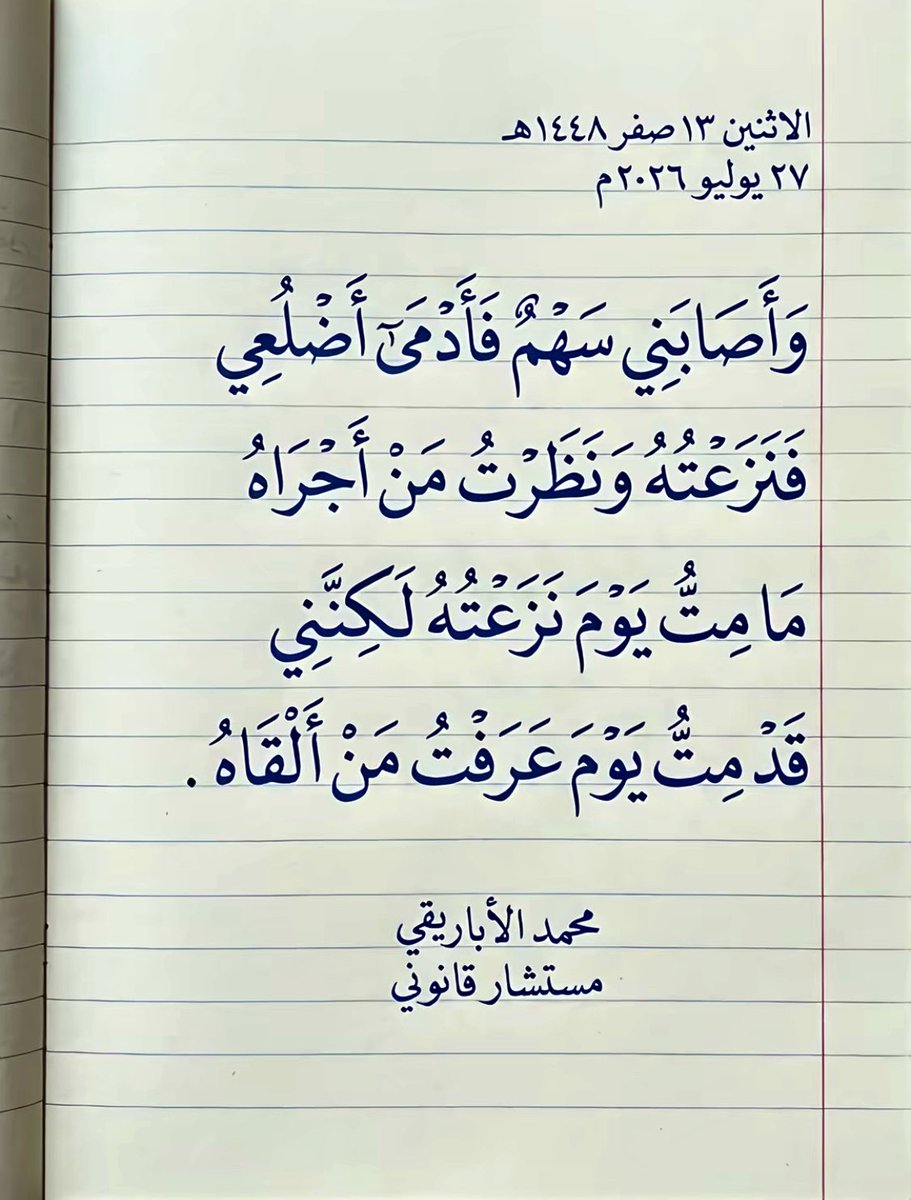 الاثنين ١٣ صفر ١٤٤٨هـ
٢٧ يوليو ٢٠٢٦م
وَأَصَابَنِي سَهْمٌ فَأَدْمَىٓ أَضْلُعِي
فَنَزَعْتُهُ وَنَظَرْتُ مَنْ أَجْرَاهُ
مَا مِتُّ يَوْمَ نَزَعْتُهُ لَكِنَّنِي
قَدْ مِتُّ يَوْمَ عَرَفْتُ مَنْ أَلْقَاهُ .
محمد الأباريقي
مستشار قانوني